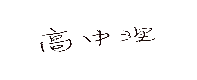 高中理